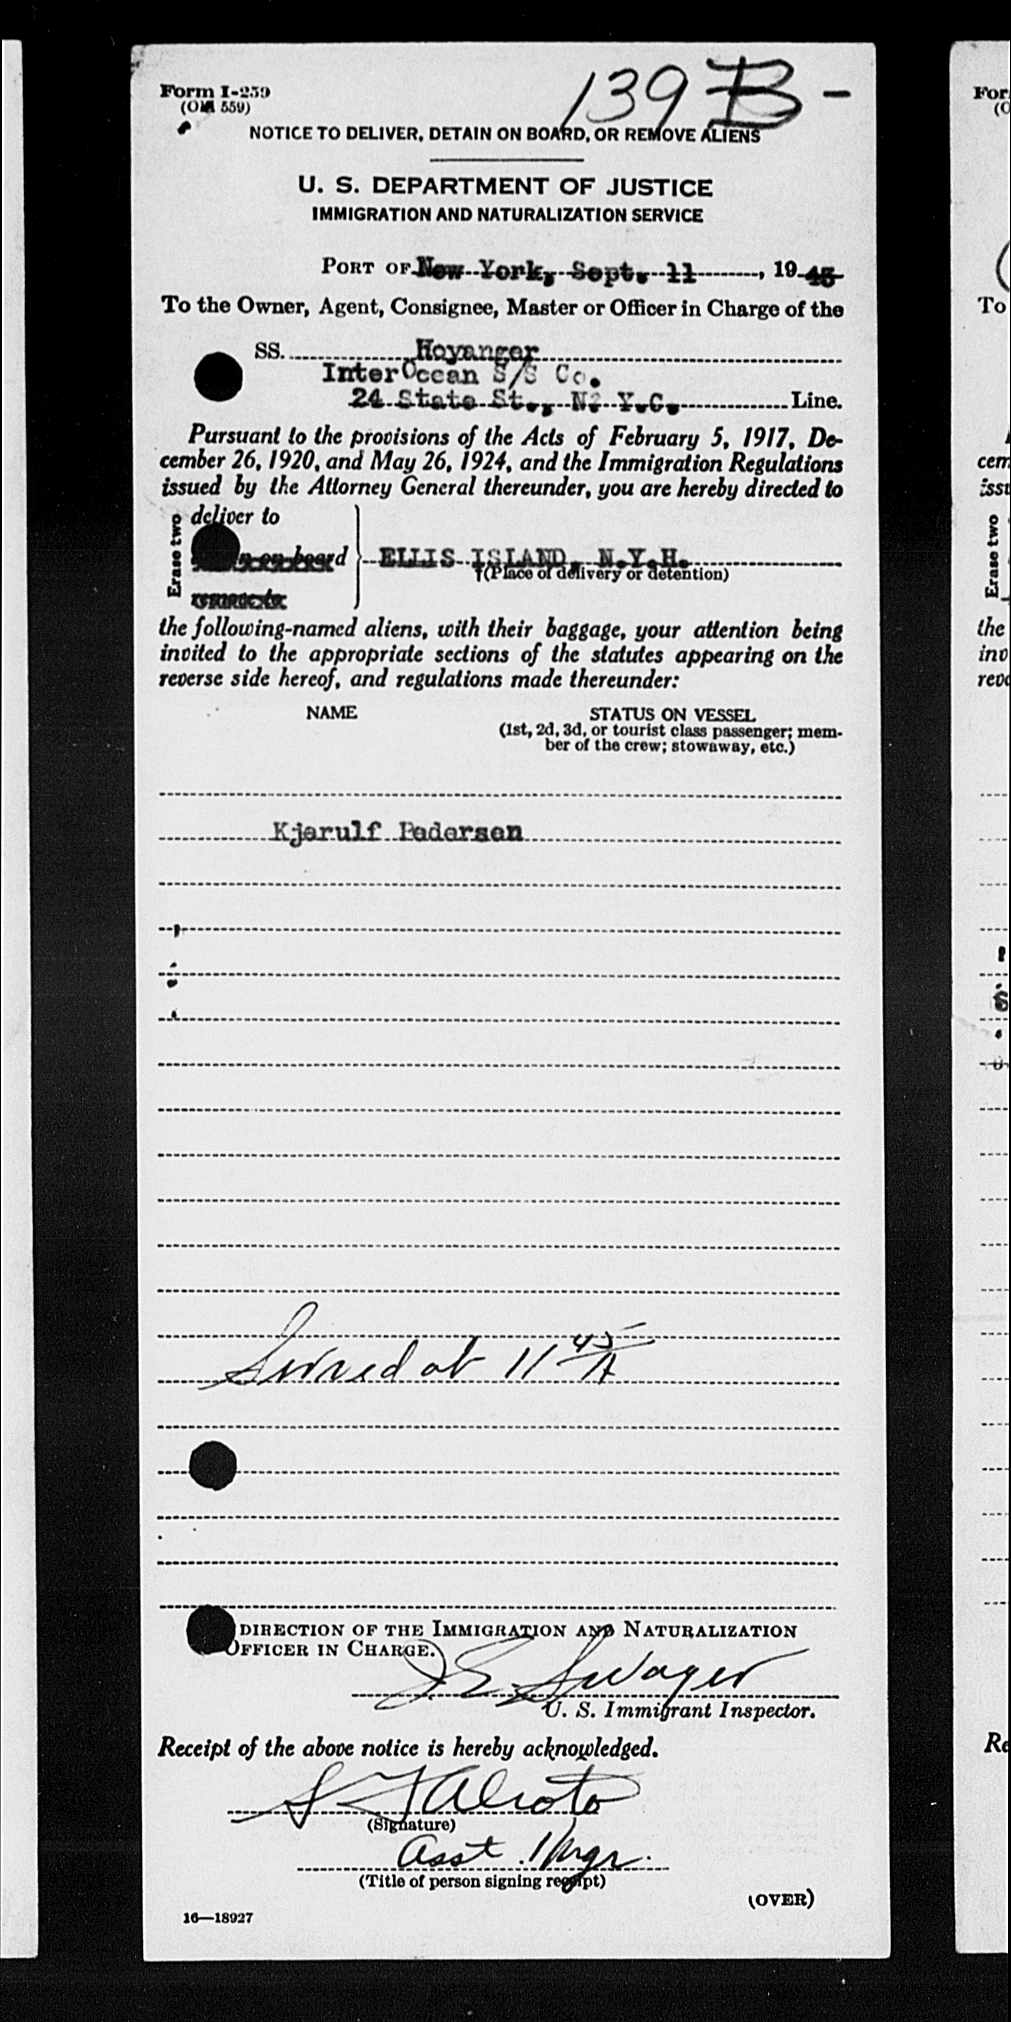 139 B -
Form I-259
(Old 559)
NOTICE TO DELIVER, DETAIN ON BOARD, OR REMOVE ALIENS
U. S. DEPARTMENT OF JUSTICE
IMMIGRATION AND NATURALIZATION SERVICE
PORT OF New York, Sept. 11, 1945
To the Owner, Agent, Consignee, Master or Officer in Charge of the
SS. Hoyanger
InterOccan S/S Co.
24 State St., N. Y.C. Line.
Pursuant to the provisions of the Acts of February 5, 1917, De-
cember 26, 1920, and May 26, 1924, and the Immigration Regulations
issued by the Attorney General thereunder, you are hereby directed to
Erase two
deliver to
n on board
remove to
ELLIS ISLAND, N.Y.H.
†(Place of delivery or detention)
the following-named aliens, with their baggage, your attention being
invited to the appropriate sections of the statutes appearing on the
reverse side hereof, and regulations made thereunder:
NAME
STATUS ON VESSEL
(1st, 2d, 3d, or tourist class passenger; mem-
ber of the crew; stowaway, etc.)
Kjerulf Pedersen
Served at 11 45/A
DIRECTION OF THE IMMIGRATION AND NATURALIZATION
OFFICER IN CHARGE.
J E Swager
U. S. Immigrant Inspector.
Receipt of the above notice is hereby acknowledged.
(Signature)
Asst. Mgr.
(Title of person signing receipt)
(OVER)
16—18927
For
To
cem
issu
Erase two
the
inv
reve
Re